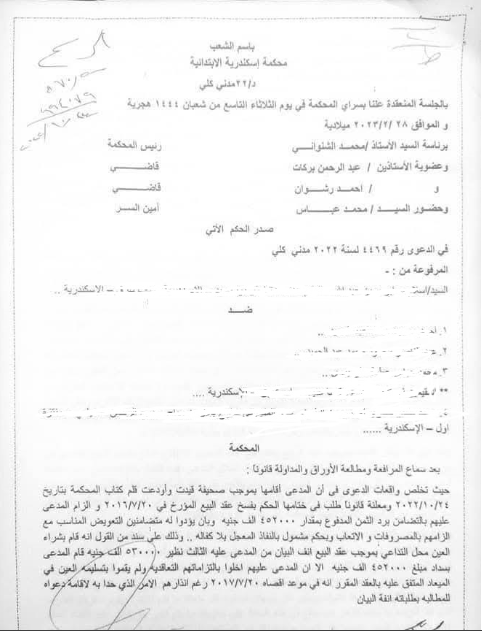 باسم الشعب
محكمة إسكندرية الابتدائية
د/٢٢مدني كلي
بالجلسة المنعقدة علنا بسراي المحكمة في يوم الثلاثاء التاسع من شعبان ١٤٤٤ هجرية
و الموافق ٢٨ /٢/ ٢٠٢٣ ميلادية
برئاسة السيد الأستاذ/محمد الشلواني رئيس المحكمة
وعضوية الأستاذين / عبد الرحمن بركات قاضي
و / احمد رشوان قاضي
وحضور السيد / محمد عباس أمين السر
صدر الحكم الأتي
في الدعوى رقم ٤٤٦٩ لسنة ٢٠٢٢ مدني كلي
المرفوعة من : -
السيد/ – الاسكندرية ..
ضد
١.
٢.
٣.
** الإسكندرية ....
اول – الإسكندرية ......
المحكمة
بعد سماع المرافعة ومطالعة الأوراق والمداولة قانونا :
حيث تخلص واقعات الدعوى فى أن المدعى أقامها بموجب صحيفة قيدت وأودعت قلم كتاب المحكمة بتاريخ
٢٠٢٢/١٠/٢٤ ومعلنة قانونا طلب فى ختامها الحكم بفسخ عقد البيع المؤرخ في ٢٠١٦/٧/٢٠ و الزام المدعى
عليهم بالتضامن برد الثمن المدفوع بمقدار ٤٥٢٠٠٠ الف جنيه وبان يؤدوا له متضامنين التعويض المناسب مع
الزامهم بالمصروفات و الاتعاب وبحكم مشمول بالنفاذ المعجل بلا كفاله .. وذلك على سند من القول انه قام بشراء
العين محل التداعي بموجب عقد البيع انف البيان من المدعى عليه الثالث نظير ٥٣٠٠٠٠ الف جنيه قام المدعى
بسداد مبلغ ٤٥٢٠٠٠ الف جنيه الا ان المدعى عليهم اخلوا بالتزاماتهم التعاقديه ولم يقموا بتسليمه العين في
الميعاد المتفق عليه بالعقد المقرر انه في موعد اقصاه ٢٠١٧/٧/٢٠ رغم انذارهم الامر الذي حدا به لاقامة دعواه
للمطالبه بطلباته انفة البيان